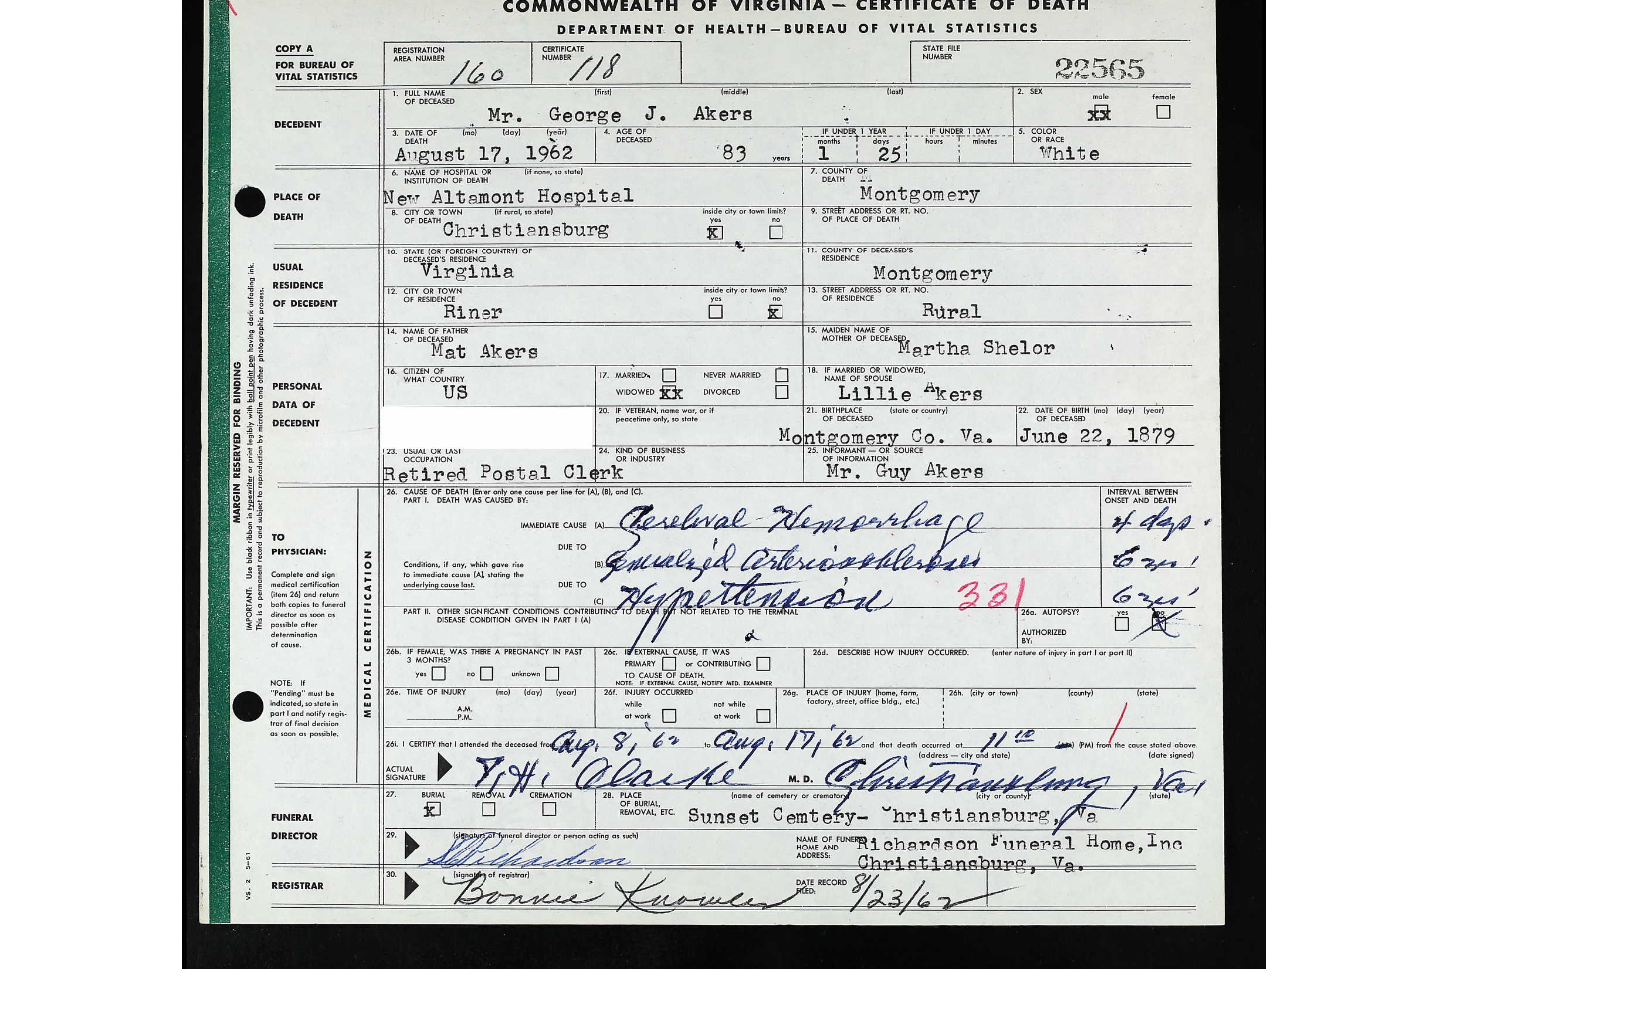 COMMONWEALTH OF VIRGINIA — CERTIFICATE OF DEATH
DEPARTMENT OF HEALTH—BUREAU OF VITAL STATISTICS
COPY A
FOR BUREAU OF
VITAL STATISTICS
REGISTRATION
AREA NUMBER 160
CERTIFICATE
NUMBER 118
STATE FILE
NUMBER 22565
DECEDENT
1. FULL NAME (first) (middle) (last)
OF DECEASED
Mr. George J. Akers
2. SEX male female
xx
3. DATE OF (mo) (day) (year)
DEATH
August 17, 1962
4. AGE OF
DECEASED
83 years
IF UNDER 1 YEAR IF UNDER 1 DAY
months days hours minutes
1 25
5. COLOR
OR RACE
White
PLACE OF
DEATH
6. NAME OF HOSPITAL OR (if none, so state)
INSTITUTION OF DEATH
New Altamont Hospital
7. COUNTY OF
DEATH
Montgomery
8. CITY OR TOWN (if rural, so state) inside city or town limit?
OF DEATH yes no
Christiansburg x
9. STREET ADDRESS OR RT. NO.
OF PLACE OF DEATH
USUAL
RESIDENCE
OF DECEDENT
10. STATE (OR FOREIGN COUNTRY) OF
DECEASED'S RESIDENCE
Virginia
11. COUNTY OF DECEASED'S
RESIDENCE
Montgomery
12. CITY OR TOWN inside city or town limit?
OF RESIDENCE yes no
Riner x
13. STREET ADDRESS OR RT. NO.
OF RESIDENCE
Rural
PERSONAL
DATA OF
DECEDENT
14. NAME OF FATHER
OF DECEASED
Mat Akers
15. MAIDEN NAME OF
MOTHER OF DECEASED
Martha Shelor
16. CITIZEN OF
WHAT COUNTRY
US
17. MARRIED NEVER MARRIED
WIDOWED xx DIVORCED
18. IF MARRIED OR WIDOWED,
NAME OF SPOUSE
Lillie Akers
20. IF VETERAN, name war, or if
peacetime only, so state
21. BIRTHPLACE (state or country)
OF DECEASED
Montgomery Co. Va.
22. DATE OF BIRTH (mo) (day) (year)
OF DECEASED
June 22, 1879
23. USUAL OR LAST
OCCUPATION
Retired Postal Clerk
24. KIND OF BUSINESS
OR INDUSTRY
25. INFORMANT — OR SOURCE
OF INFORMATION
Mr. Guy Akers
MARGIN RESERVED FOR BINDING
IMPORTANT: Use black ribbon in typewriter or print legibly with ball point pen having dark unfading ink.
This is a permanent record and subject to reproduction by microfilm and other photographic process.
TO
PHYSICIAN:
Complete and sign
medical certification
(item 26) and return
both copies to funeral
director as soon as
possible after
determination
of cause.
NOTE: If
"Pending" must be
indicated, so state in
part I and notify regis-
trar of final decision
as soon as possible.
MEDICAL CERTIFICATION
26. CAUSE OF DEATH (Enter only one cause per line for (A), (B), and (C).
PART I. DEATH WAS CAUSED BY:
INTERVAL BETWEEN
ONSET AND DEATH
IMMEDIATE CAUSE (A) Cerebral Hemorrhage days
DUE TO
Conditions, if any, which gave rise
to immediate cause (A), stating the
underlying cause last.
(B) Generalized Arteriosclerosis 6 yrs
DUE TO
(C) Hypertension 331 6 yrs
PART II. OTHER SIGNIFICANT CONDITIONS CONTRIBUTING TO DEATH BUT NOT RELATED TO THE TERMINAL
DISEASE CONDITION GIVEN IN PART I (A)
26a. AUTOPSY? yes no
AUTHORIZED
BY:
26b. IF FEMALE, WAS THERE A PREGNANCY IN PAST
3 MONTHS?
yes no unknown
26c. IF EXTERNAL CAUSE, IT WAS
PRIMARY or CONTRIBUTING
TO CAUSE OF DEATH.
NOTE: IF EXTERNAL CAUSE, NOTIFY MED. EXAMINER
26d. DESCRIBE HOW INJURY OCCURRED. (enter nature of injury in part I or part II)
26e. TIME OF INJURY (mo) (day) (year)
A.M.
P.M.
26f. INJURY OCCURRED
while not while
at work at work
26g. PLACE OF INJURY (home, farm,
factory, street, office bldg., etc.)
26h. (city or town) (county) (state)
26i. I CERTIFY that I attended the deceased from Aug. 8, '62 to Aug. 17, '62 and that death occurred at 11 10 (PM) from the cause stated above.
(address — city and state) (date signed)
ACTUAL
SIGNATURE Clarke M. D. Christiansburg, Va.
FUNERAL
DIRECTOR
27. BURIAL REMOVAL CREMATION
x
28. PLACE (name of cemetery or crematory) (city or county) (state)
OF BURIAL,
REMOVAL, ETC. Sunset Cemtery- Christiansburg, Va
29. (signature of funeral director or person acting as such)
Richardson
NAME OF FUNERAL
HOME AND
ADDRESS:
Richardson Funeral Home,Inc
Christiansburg, Va.
REGISTRAR
30. (signature of registrar)
Bonnie Knowles
DATE RECORD
FILED: 8/23/62
VS. 2 5-61